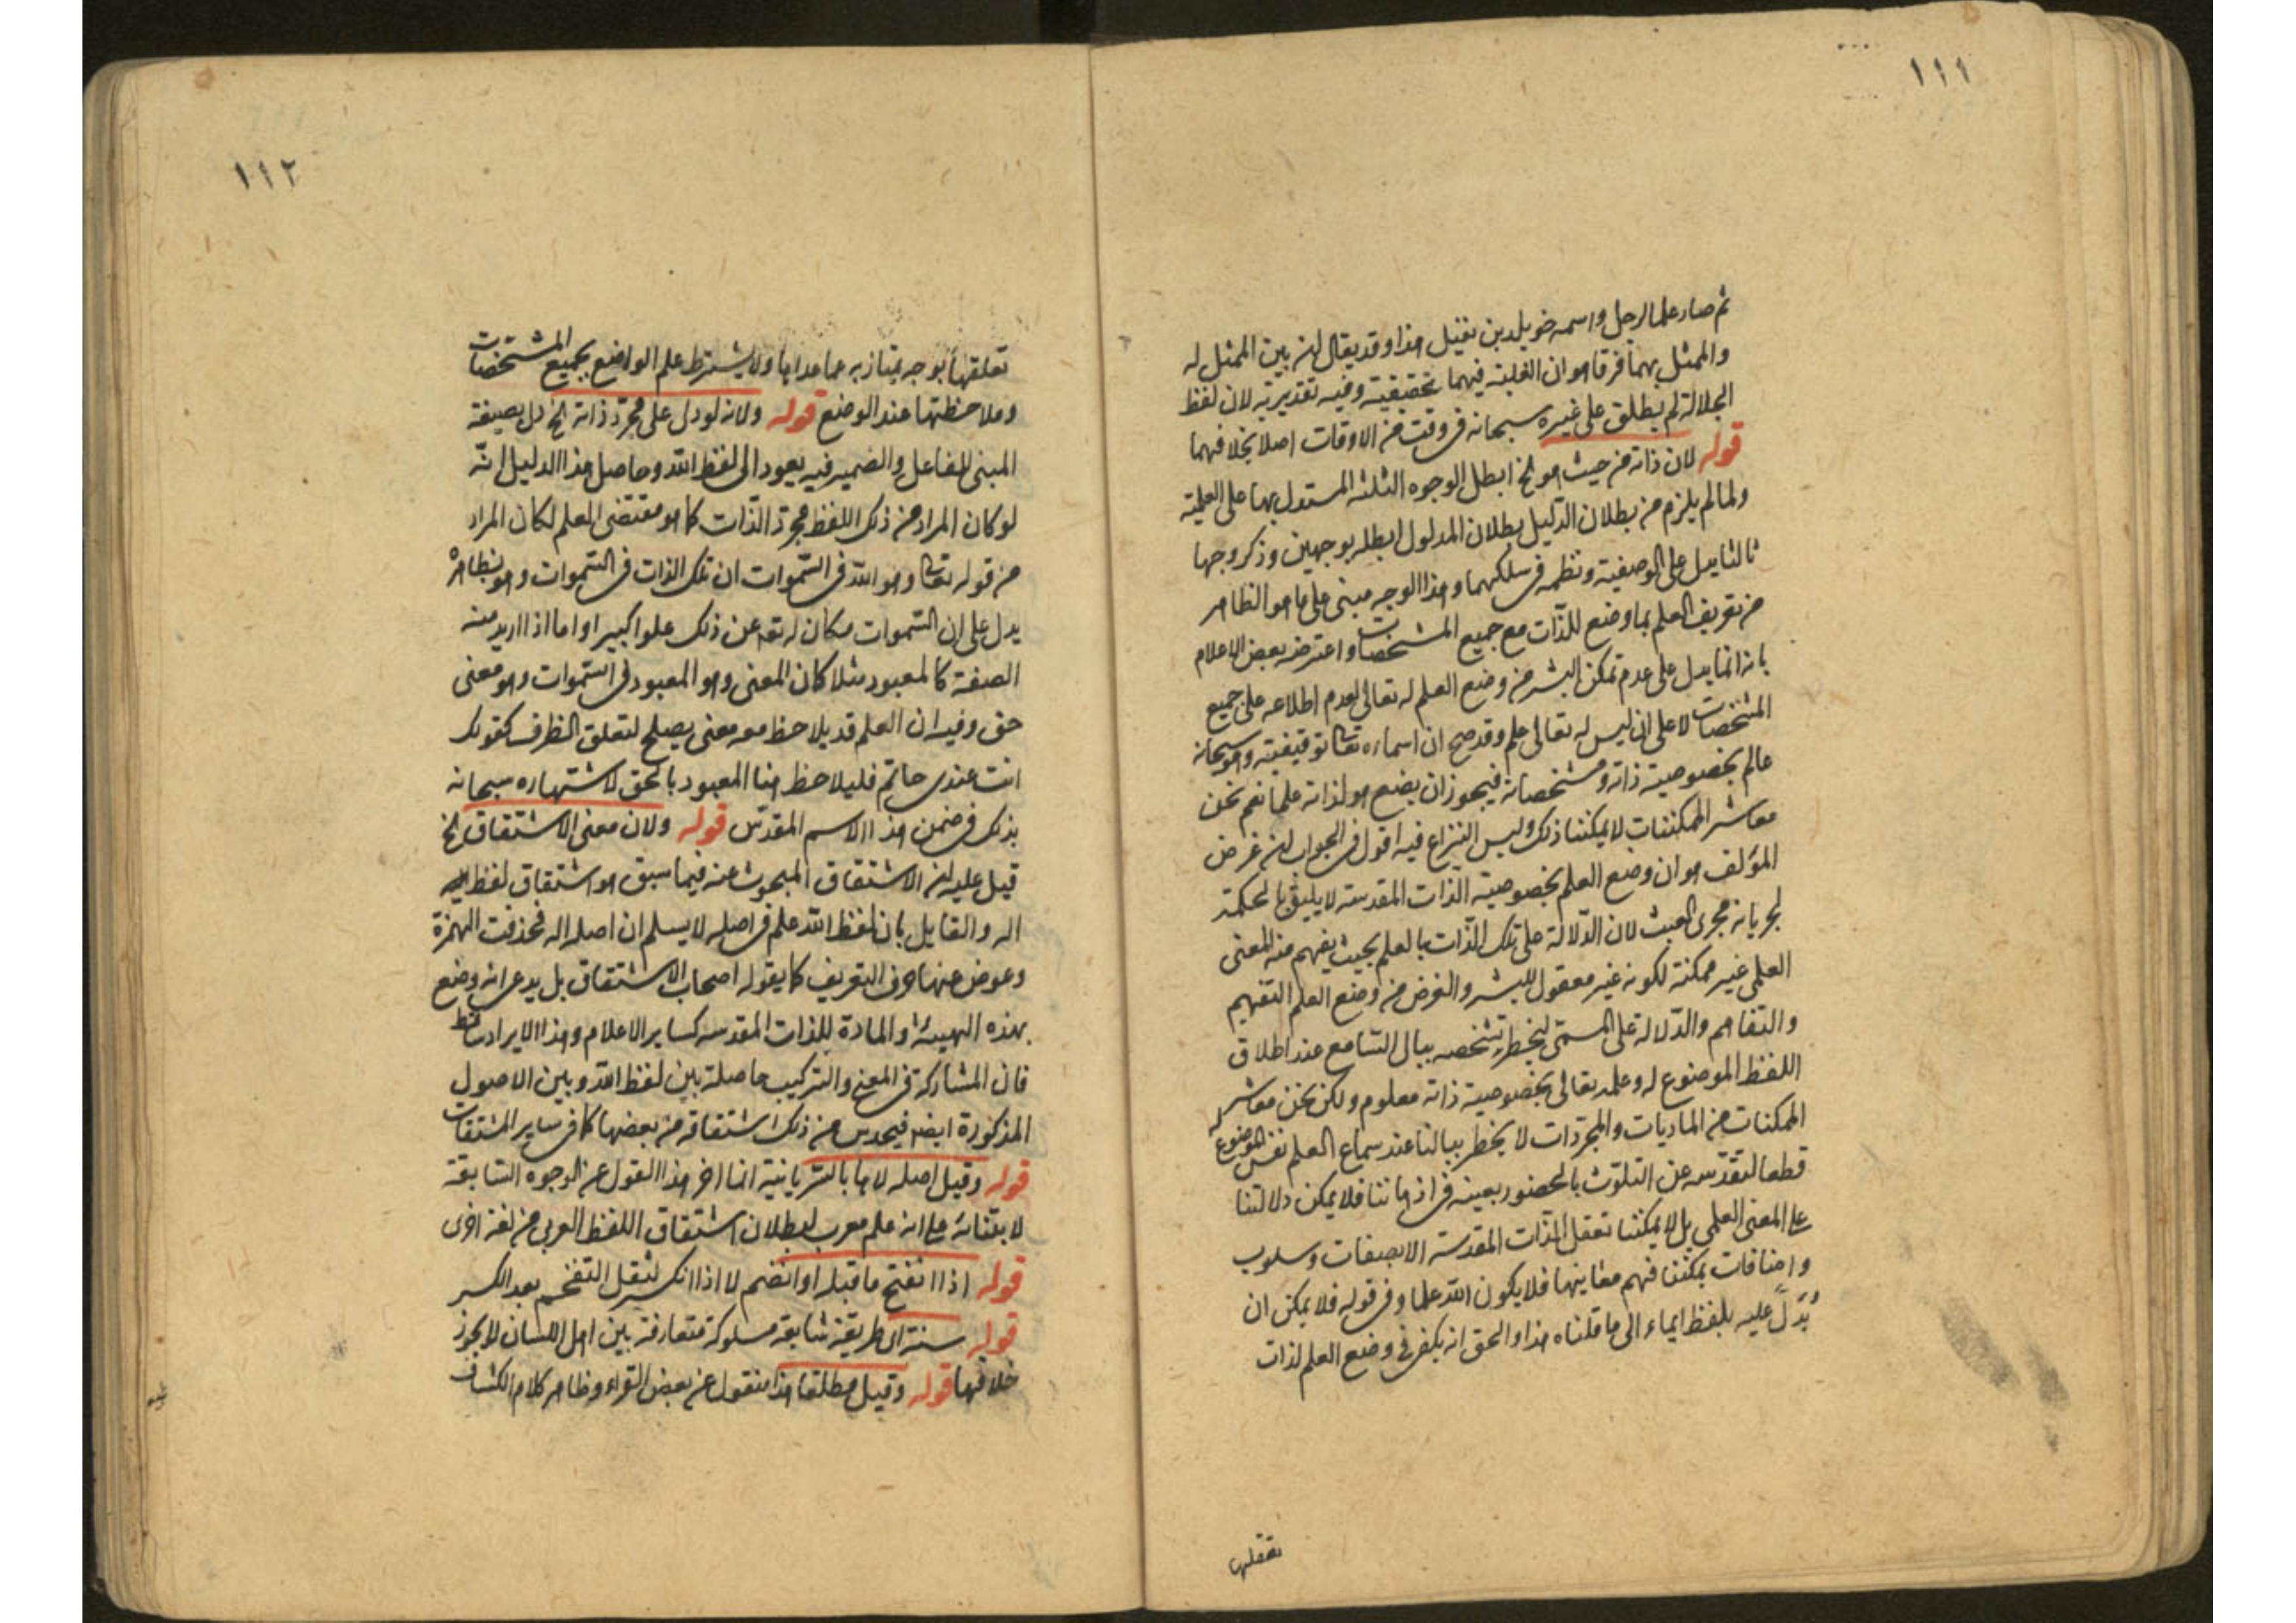 ١١١
ثم صار علما لرجل واسمه خويلد بن نفيل هذا وقد يقال ان بين الممثل له
والممثل بهما فرقا هو ان الغلبة فيهما تحقيقية وفيه تقديرية لان لفظ
الجلالة لم يطلق على غيره سبحانه في وقت من الاوقات اصلا بخلافهما
قوله لان ذاته من حيث هو الخ ابطل الوجوه الثلثة المستدل بها على العلمية
ولما لم يلزم من بطلان الدليل بطلان المدلول ابطله بوجهين وذكر وجها
ثالثا يدل على الوصفية ونظمه في سلكهما وهذا الوجه مبنى على ما هو الظاهر
من تعريف العلم بما وضع للذات مع جميع المشخصات واعترضه بعض الاعلام
بانه انما يدل على عدم تمكن البشر من وضع العلم له تعالى لعدم اطلاعه على جميع
المشخصات لا على ان ليس له تعالى علم وقد صح ان اسماءه تعالى توقيفية وهو سبحانه
عالم بخصوصية ذاته ومشخصاته فيجوز ان يضع هو لذاته علما نعم نحن
معاشر الممكنات لا يمكننا ذلك وليس النزاع فيه اقول في الجواب ان غرض
المؤلف هو ان وضع العلم بخصوصية الذات المقدسة لا يليق بالحكمة
لجريانه مجرى العبث لان الدلالة على تلك الذات بالعلم بحيث يفهم منه المعنى
العلمى غير ممكنة لكونه غير معقول للبشر والغرض من وضع العلم التفهيم
والتفاهم والدلالة على المسمى ليخطر بتشخصه ببال السامع عند اطلاق
اللفظ الموضوع له وعلمه تعالى بخصوصية ذاته معلوم ولكن نحن معاشر
الممكنات من الماديات والمجردات لا يخطر ببالنا عند سماع العلم نفس الموضوع له
قطعا لتقدسه عن التلوث بالحضور بعينه في اذهاننا فلا يمكن دلالتنا
على المعنى العلمى بل لا يمكننا تعقل الذات المقدسة الا بصفات وسلوب
واضافات يمكننا فهم معانيها فلا يكون الله علما وفى قوله فلا يمكن ان
يدل عليه بلفظ ايماء الى ما قلناه هذا والحق انه يكفى في وضع العلم لذات
تعقلها
١١٢
تعلقها بوجه يمتاز به عما عداها ولا يشترط علم الواضع بجميع المشخصات
وملاحظتها عند الوضع قوله ولانه لو دل على مجرد ذاته الخ دل بصيغة
المبنى للفاعل والضمير فيه يعود الى لفظ الله وحاصل هذا الدليل انه
لو كان المراد من ذلك اللفظ مجرد الذات كما هو مقتضى العلم لكان المراد
من قوله تعالى وهو الله في السموات ان تلك الذات في السموات وهو بظاهره
يدل على ان السموات مكان له تعه عن ذلك علوا كبيرا واما اذا اريد منه
الصفة كالمعبود مثلا كان المعنى وهو المعبود في السموات وهو معنى
حق وفيه ان العلم قد يلاحظ معه معنى يصلح لتعلق الظرف كقولك
انت عندى حاتم فليلاحظ هنا المعبود بالحق لاشتهاره سبحانه
بذلك في ضمن هذا الاسم المقدس قوله ولان معنى الاشتقاق الخ
قيل عليه ان الاشتقاق المبحوث عنه فيما سبق هو اشتقاق لفظ
اله والقايل بان لفظ الله علم في اصله لا يسلم ان اصله اله فحذفت الهمزة
وعوض عنها حرف التعريف كما يقوله اصحاب الاشتقاق بل يدعى انه وضع
بهذه الهيئة والمادة للذات المقدسه كساير الاعلام وهذا الايراد ساقط
فان المشاركة في المعنى والتركيب حاصلة بين لفظ الله وبين الاصول
المذكورة ايضا فيحدس من ذلك اشتقاقه من بعضها كما في ساير المشتقات
قوله وقيل اصله لاها بالسريانية انما اخر هذا القول عن الوجوه السابقة
لابتنائه على انه علم معرب لبطلان اشتقاق اللفظ العربى من لغة اخرى
قوله اذا انفتح ما قبله او انضم لا اذا انكسر لثقل التفخيم بعد الكسر
قوله سنة اى طريقة شايعة مسلوكة متعارفة بين اهل اللسان لا يجوز
خلافها قوله وقيل مطلقا هذا منقول عن بعض القراء وظاهر كلام الكشاف